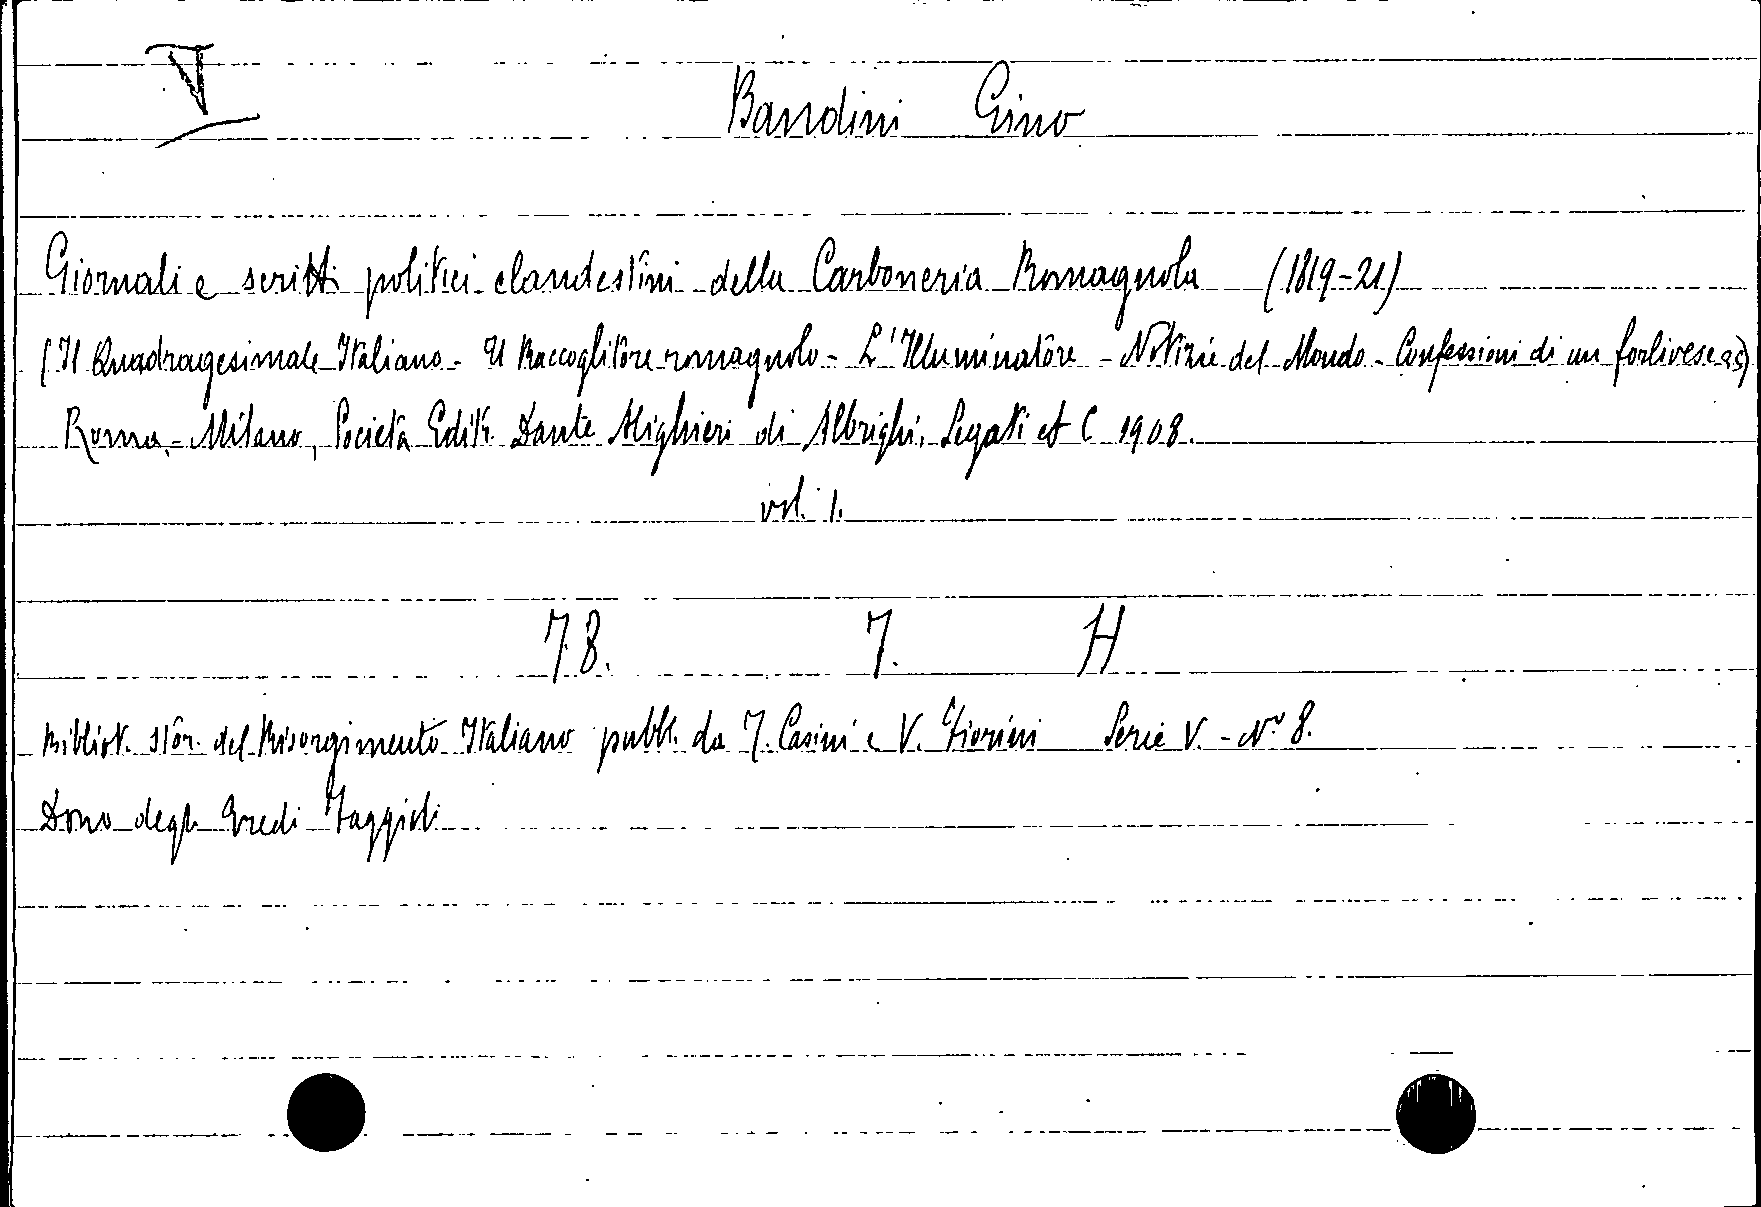 V
Bandini Gino
Giornali e scritti politici clandestini della Carboneria Romagnola (1819-21)
(Il Quadragesimale Italiano - Il Raccoglitore romagnolo - L'Illuminatore - Notizie del Mondo - Confessioni di un forlivese
Roma - Milano, Società Editr. Dante Alighieri di Albrighi, Segati et C 1908.
vol. 1.
78. 7. H
Bibliot. stor. del Risorgimento Italiano pubbl. da T. Casini e V. Fiorini Serie V. - N° 8.
Dono degli Eredi